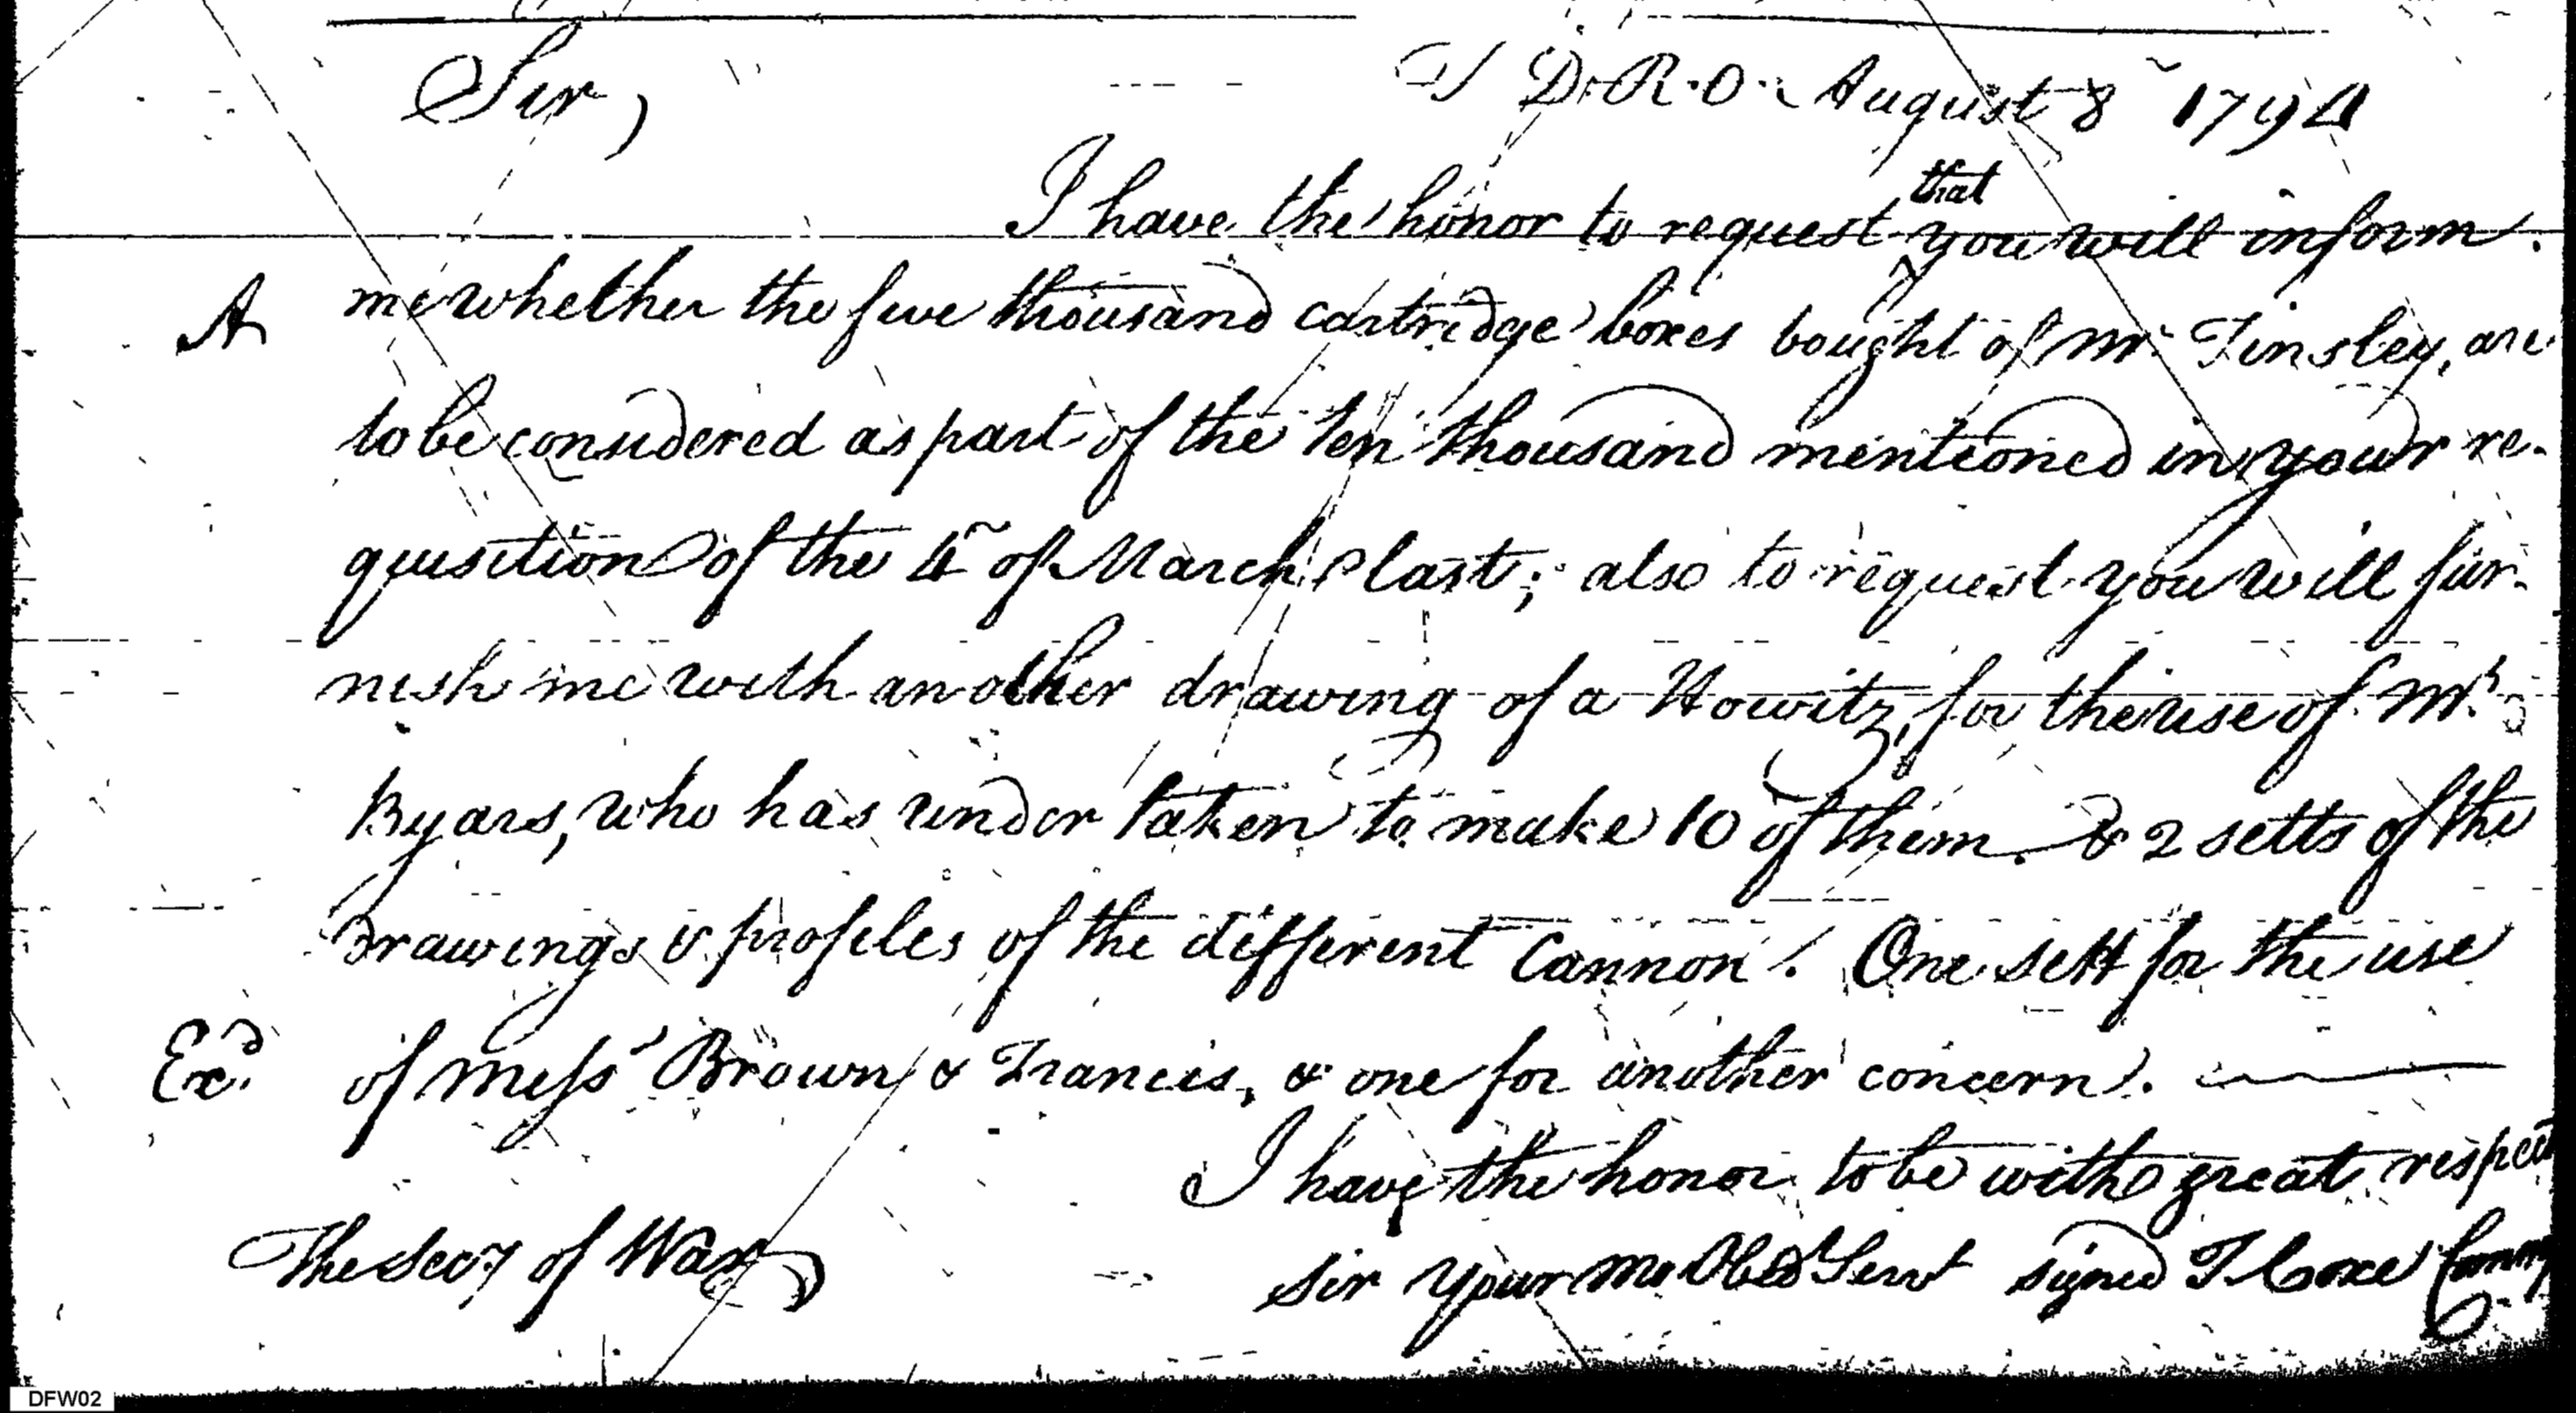 Sir,
T D. R. O. August 8 1794
that
I have the honor to request you will inform
A
me whether the five thousand cartridge boxes bought of Mr. Tinsley, are
to be considered as part of the ten thousand mentioned in your re-
quisition of the 4 of March last; also to request you will fur-
nish me with another drawing of a Howitz, for the use of Mr.
Byars, who has under taken to make 10 of them. & 2 setts of the
Drawings & profiles of the different Cannon. One sett for the use
Exd.
of Messrs Brown & Francis, & one for another concern.
I have the honor to be with great respect
The Secy of War
Sir Your Mo Obed Servt signed T Coxe Commr
DFW02